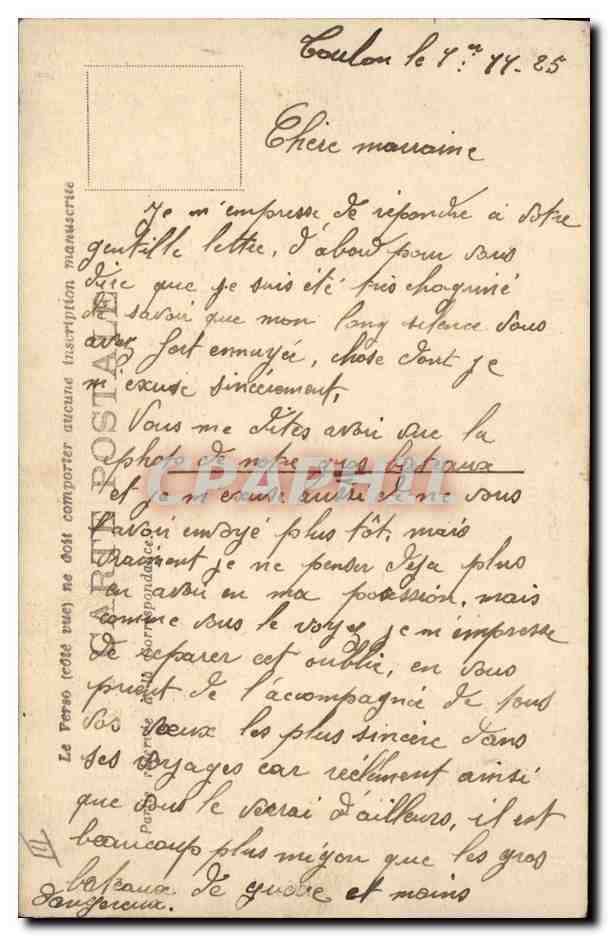 Toulon le 1er 11-25
Chère marraine
Je m'empresse de répondre à votre
gentille lettre, d'abord pour vous
dire que je suis été très chagriné
de savoir que mon long silence vous
avez fort ennuyée, chose dont je
m'excuse sincèrement,
Vous me dites avoir vue la
photo de notre gros bateaux
et je m'excuse aussi de ne vous
l'avoir envoyé plus tôt, mais
vraiment je ne penser déja plus
en avoir en ma possession, mais
comme vous le voyez je m'empresse
de reparer cet oublie, en vous
priant de l'accompagnée de tous
vos vœux les plus sincère dans
ses voyages car réelement ainsi
que vous le verai d'ailleurs, il est
beaucoup plus migon que les gros
bateaux de guerre et moins
dangereux.
CARTE POSTALE
Le Verso (côté vue) ne doit comporter aucune inscription manuscrite
Partie réservée à la Correspondance.
CPAPHIL